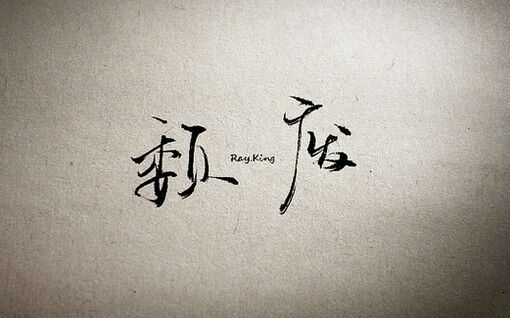 颓废
Ray.King